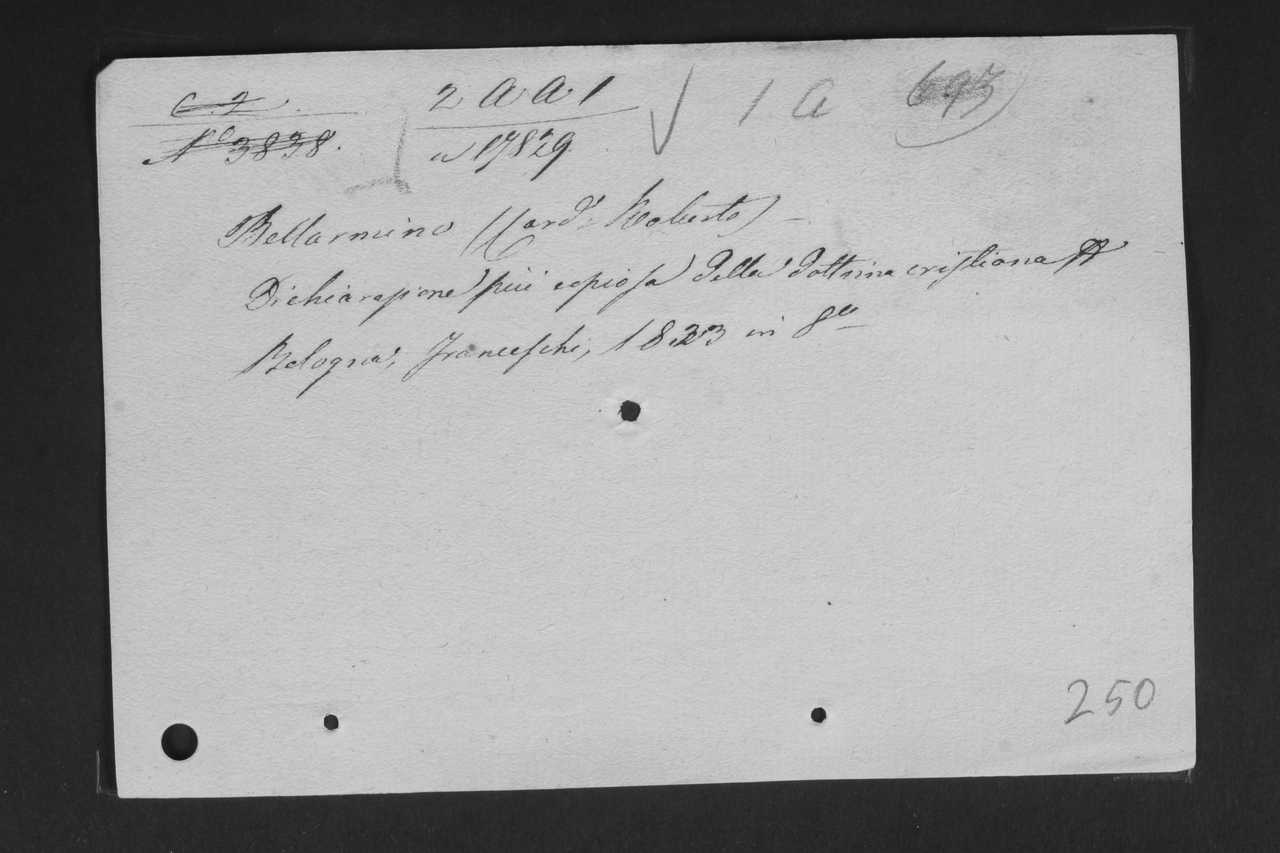 C. 2. 2 A A 1 1 A 693
N.o 3838. a 17829
Bellarmino (Card.l Roberto)
Dichiarazione più copiosa della dottrina cristiana
Bologna, Franceschi, 1833 in 8°
250